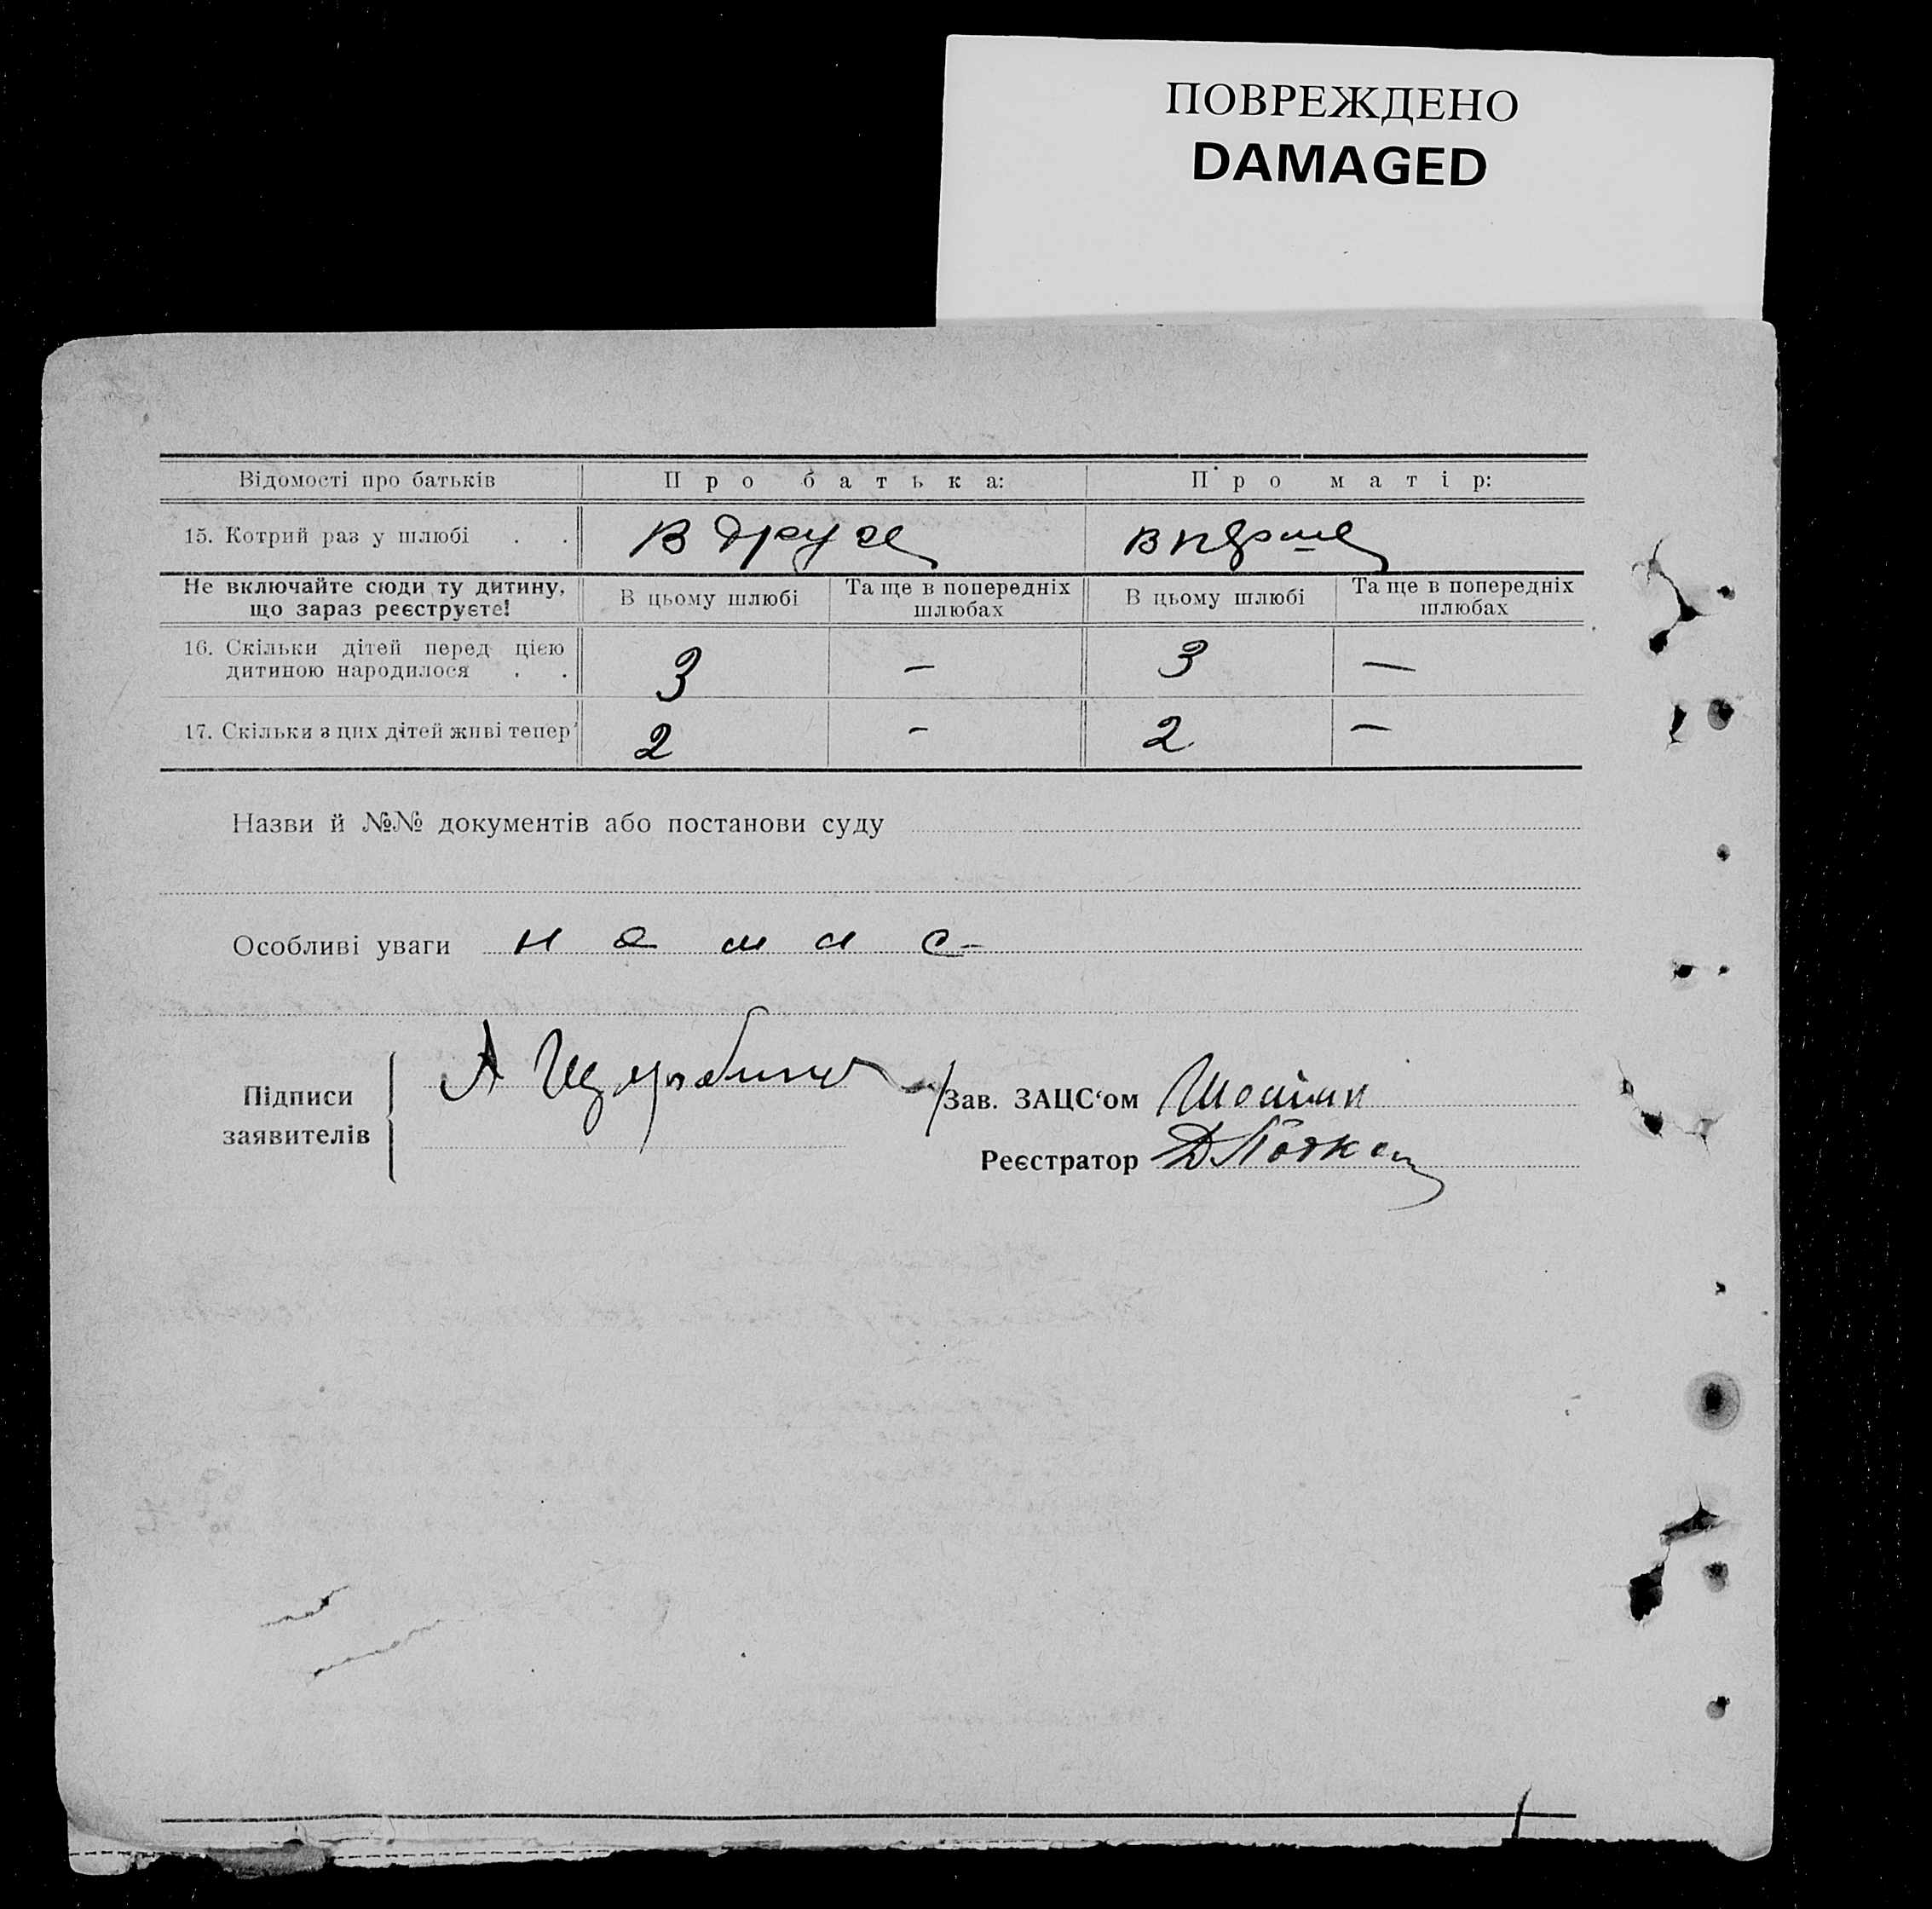 ПОВРЕЖДЕНО
DAMAGED
Відомості про батьків Про батька: Про матір:
15. Котрий раз у шлюбі . . В друге вперше
Не включайте сюди ту дитину, що зараз реєструєте! В цьому шлюбі Та ще в попередніх шлюбах В цьому шлюбі Та ще в попередніх шлюбах
16. Скільки дітей перед цією
дитиною народилося . . 3 — 3 —
17. Скільки з цих дітей живі тепер 2 — 2 —
Назви й №№ документів або постанови суду
Особливі уваги немає
Підписи
заявителів
А
Зав. ЗАЦС‘ом
Реєстратор